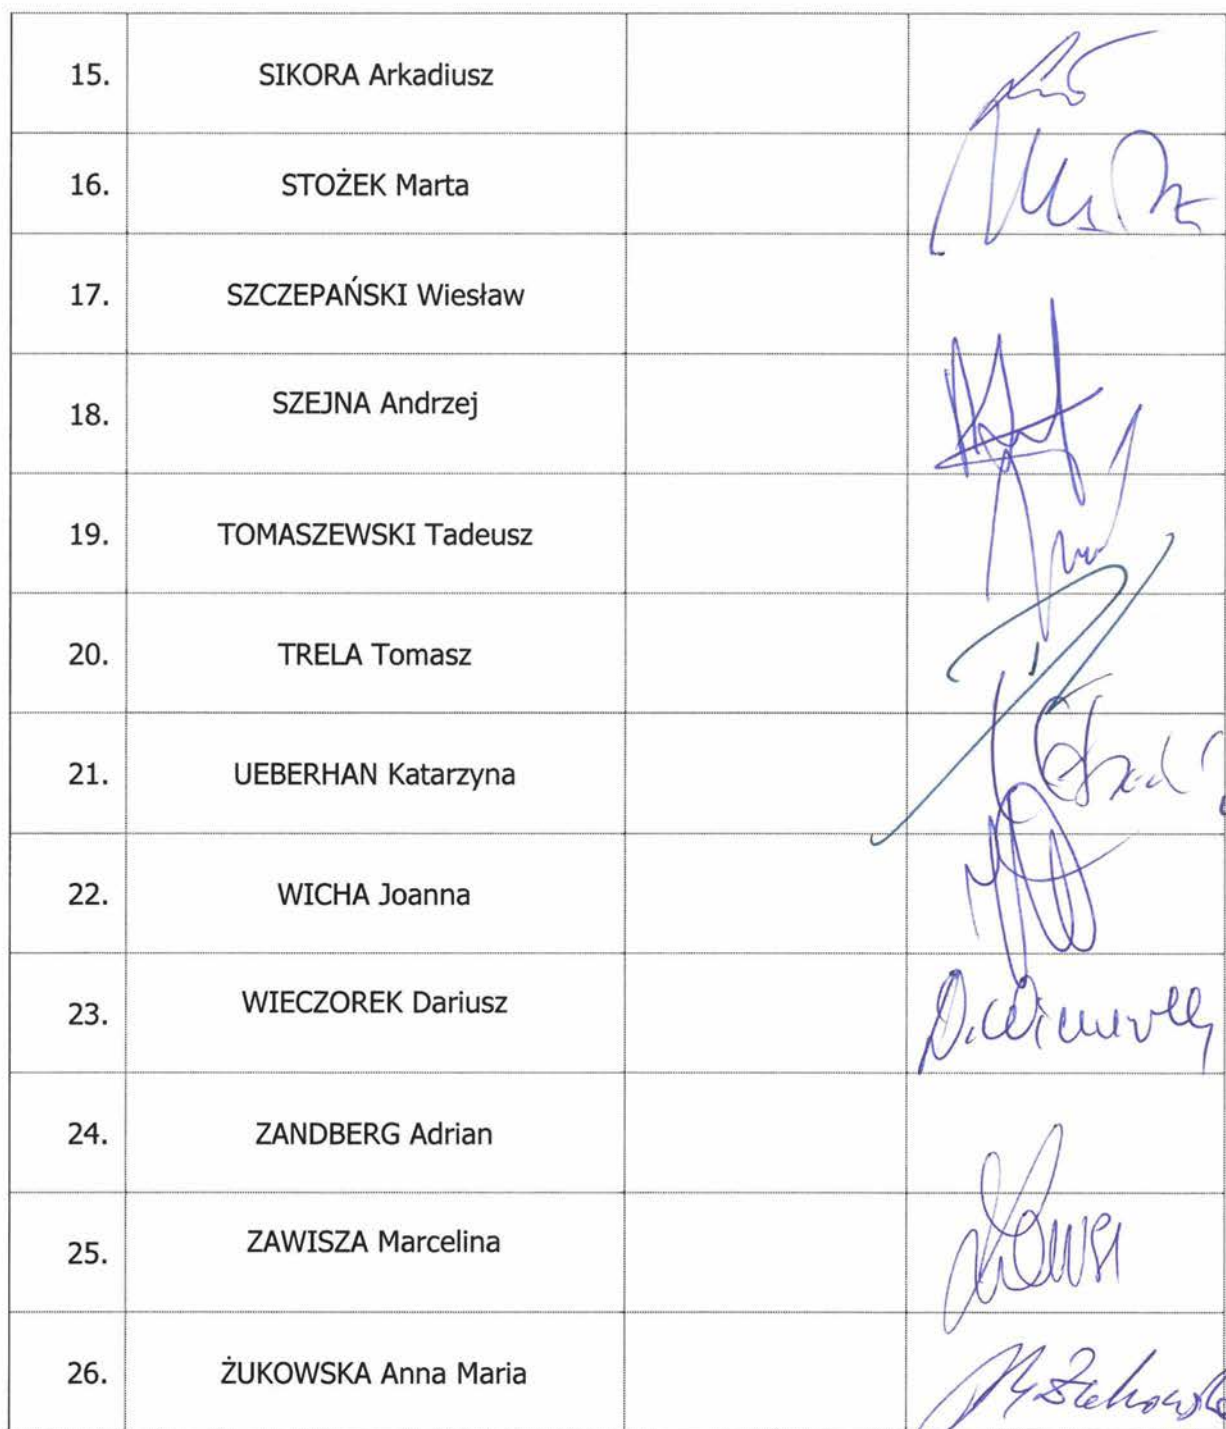 15. SIKORA Arkadiusz
16. STOŻEK Marta
17. SZCZEPAŃSKI Wiesław
18. SZEJNA Andrzej
19. TOMASZEWSKI Tadeusz
20. TRELA Tomasz
21. UEBERHAN Katarzyna
22. WICHA Joanna
23. WIECZOREK Dariusz
24. ZANDBERG Adrian
25. ZAWISZA Marcelina
26. ŻUKOWSKA Anna Maria